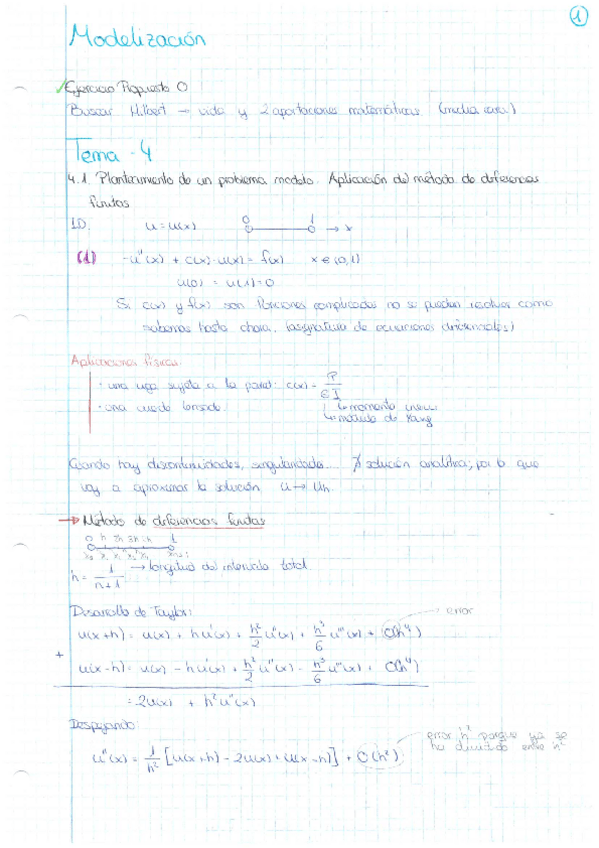 1
Modelización
Ejercicio Propuesto 0
Buscar Hilbert → vida y 2 aportaciones matemáticas (media cara)
Tema - 4
4.1. Planteamiento de un problema modelo. Aplicación del método de diferencias
finitas
1D. u = u(x) 0 1 → x
(1) -u''(x) + c(x)·u(x) = f(x) x ∈ (0,1)
u(0) = u(1) = 0
Si c(x) y f(x) son funciones complicadas no se pueden resolver como
sabemos hasta ahora, (asignatura de ecuaciones diferenciales)
Aplicaciones físicas:
· una viga sujeta a la pared: c(x) = P/EI
· una cuerda tensada. ↳ momento
↳ módulo de Yang
Cuando hay discontinuidades, singularidades... ∄ solución analítica, por lo que
voy a aproximar la solución u → uh.
→ Método de diferencias finitas
0 h 2h 3h 1
h = 1/(n+1) → longitud del intervalo total
Desarrollo de Taylor:
error
u(x+h) = u(x) + hu'(x) + h²/2 u''(x) + h³/6 u'''(x) + O(h⁴)
+
u(x-h) = u(x) - hu'(x) + h²/2 u''(x) - h³/6 u'''(x) + O(h⁴)
= 2u(x) + h²u''(x)
Despejando:
u''(x) = 1/h² [u(x+h) - 2u(x) + u(x-h)] + O(h²)
error h² porque ya se
ha dividido entre h²